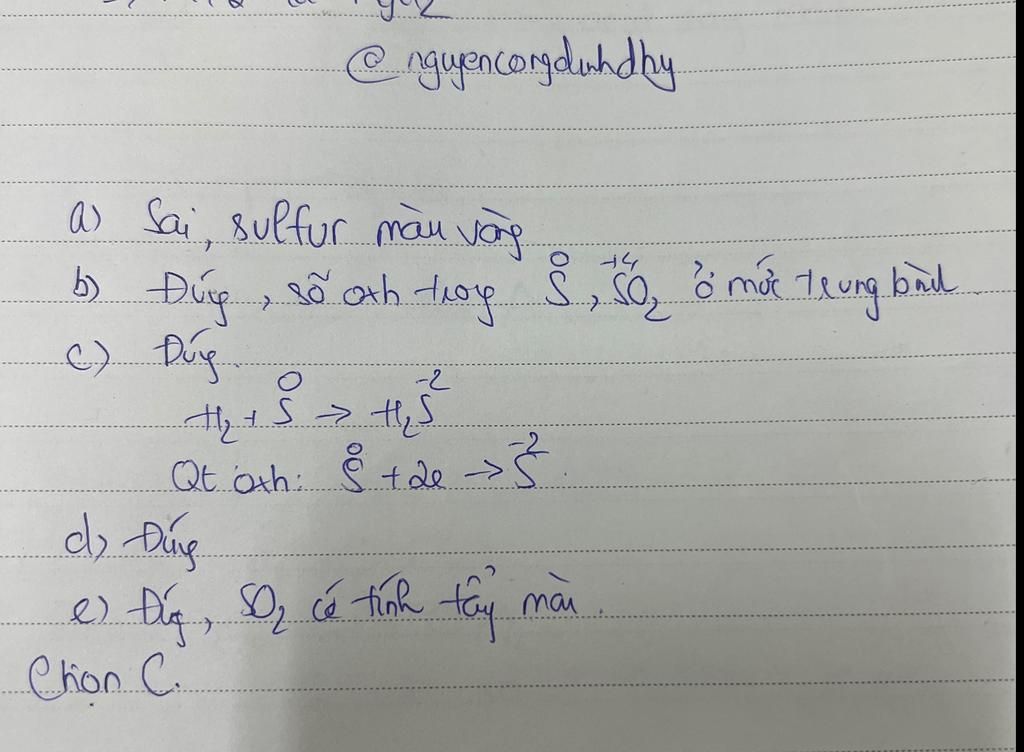 @ nguyencongdinhdhy
a) Sai, sulfur màu vàng
b) Đúng, số oxh trong S⁰, S⁺⁴O₂ ở mức trung bình
c) Đúng.
H₂ + S⁰ → H₂S⁻²
Qt oxh: S⁰ + 2e → S⁻².
d) Đúng
e) Đúng, SO₂ có tính tẩy màu.
Chọn C.